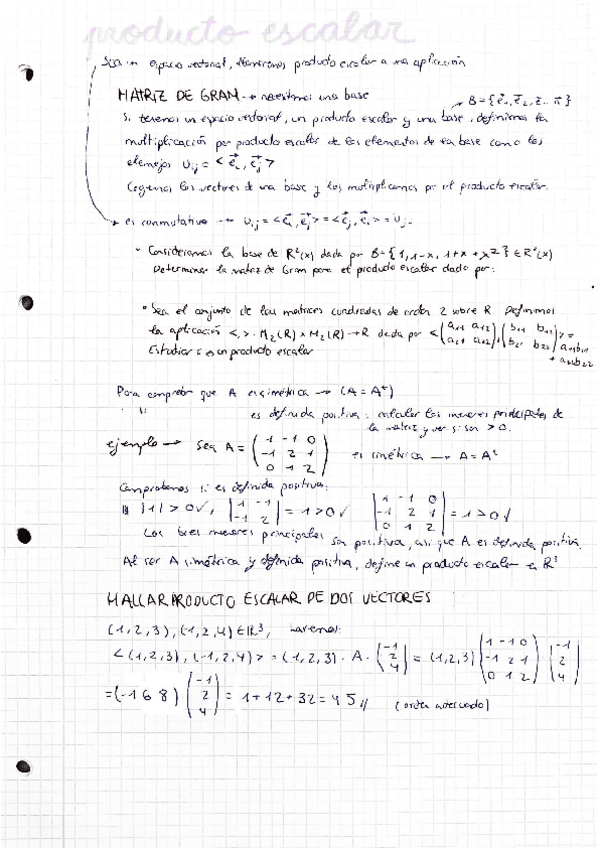 producto escalar
Sea un espacio vectorial, llamaremos producto escalar a una aplicación
MATRIZ DE GRAM → necesitamos una base
B={e⃗₁, e⃗₂, ... n⃗}
Si tenemos un espacio vectorial, un producto escalar y una base, definimos la
multiplicación por producto escalar de los elementos de esa base como los
elemejos Uij = <e⃗i, e⃗j>
Cogemos los vectores de una base y los multiplicamos por el producto escalar.
→ es conmutativo → Uij = <e⃗i, e⃗j> = <e⃗j, e⃗i> = Uji
• Consideramos la base de R²(x) dada por B={1, 1-x, 1+x+x²} ∈ R²(x)
Determinar la matriz de Gram para el producto escalar dado por:
• Sea el conjunto de las matrices cuadradas de orden 2 sobre R. Definimos
la aplicación <,> M₂(R) × M₂(R) → R dada por <(a₁₁ a₁₂ / a₂₁ a₂₂), (b₁₁ b₁₂ / b₂₁ b₂₂)> = a₁₁b₁₁ + a₂₂b₂₂
Estudiar si es un producto escalar
Para comprobar que A es simétrica → (A = Aᵗ)
" es definida positiva: calcular los menores principales de
la matriz y ver si son > 0.
ejemplo → Sea A = (1 -1 0 / -1 2 1 / 0 1 2) es simétrica → A = Aᵗ
Comprobamos si es definida positiva:
|1| > 0 ✓, |1 -1 / -1 2| = 1 > 0 ✓ |1 -1 0 / -1 2 1 / 0 1 2| = 1 > 0 ✓
Los tres menores principales son positivos, así que A es definida positiva.
Al ser A simétrica y definida positiva, define un producto escalar en R³
HALLAR PRODUCTO ESCALAR DE DOS VECTORES
(1,2,3), (-1,2,4) ∈ R³, haremos:
<(1,2,3), (-1,2,4)> = (1,2,3) · A · (-1 / 2 / 4) = (1,2,3) (1 -1 0 / -1 2 1 / 0 1 2) · (-1 / 2 / 4)
= (-1 6 8) (-1 / 2 / 4) = 1+12+32 = 45 // (orden adecuado)